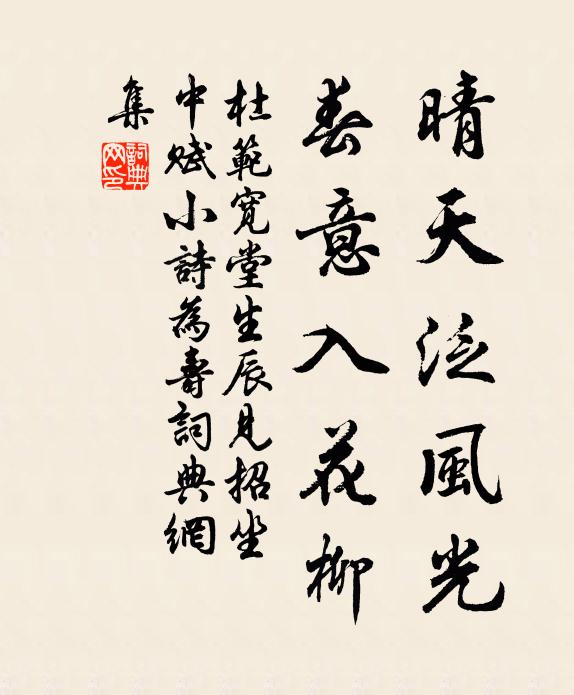 晴天泛風光
春意入花柳
杜範寬堂生辰見招坐
中賦小詩為壽詞典網
集
詞典
网印